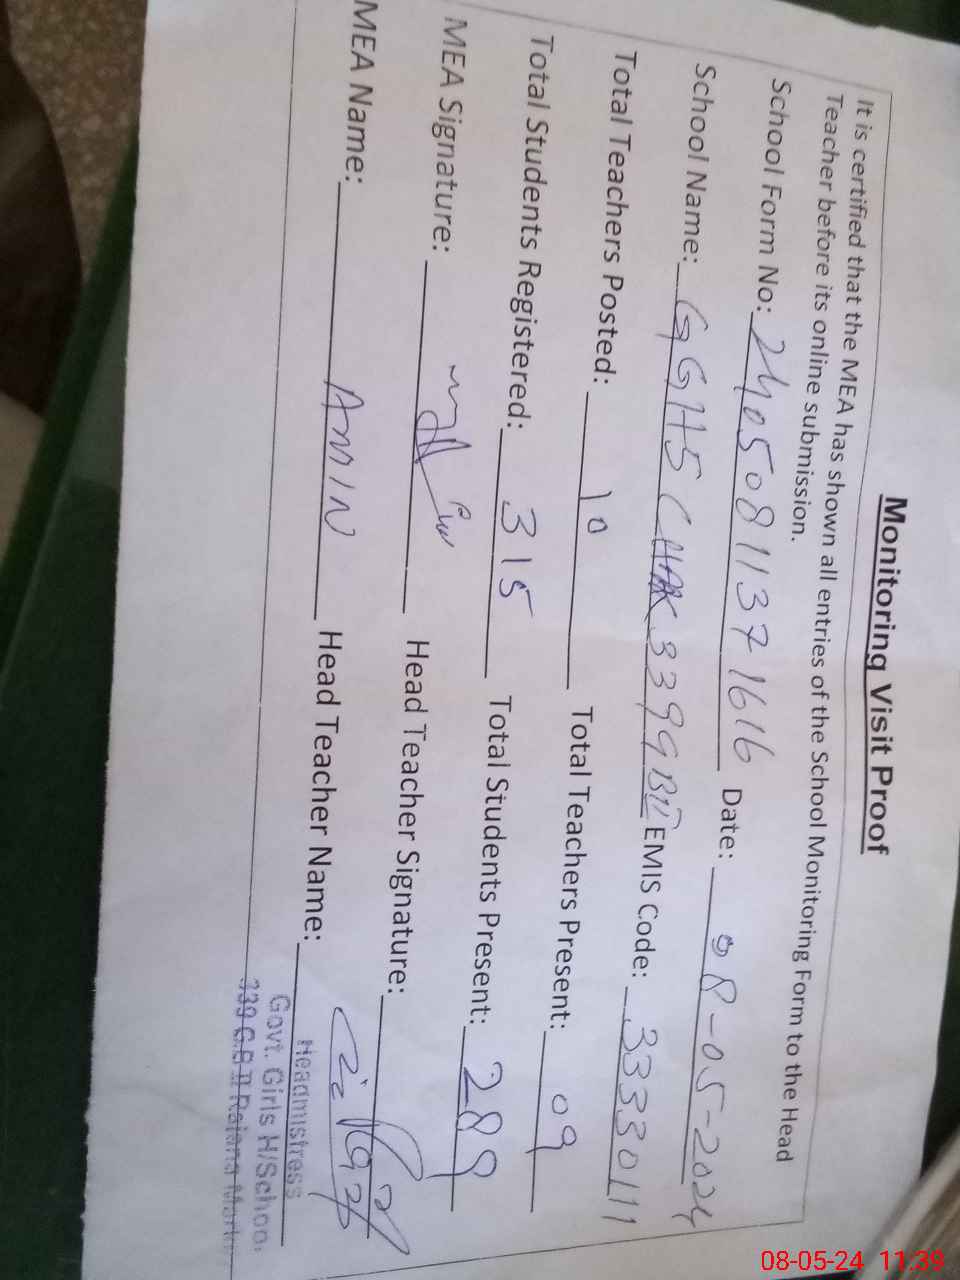 Monitoring Visit Proof
It is certified that the MEA has shown all entries of the School Monitoring Form to the Head
Teacher before its online submission.
School Form No: 24050811371616 Date: 08-05-2024
School Name: GGHS CHAK 339 GB II EMIS Code: 33330111
Total Teachers Posted: 10 Total Teachers Present: 09
Total Students Registered: 315 Total Students Present: 289
MEA Signature: Head Teacher Signature:
MEA Name: AMIN Head Teacher Name:
Headmistress
Govt. Girls H/School
339 G.B II
08-05-24 11:39